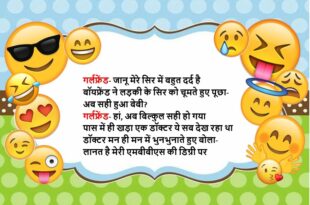 गर्लफ्रेंड- जानू मेरे सिर में बहुत दर्द है
बॉयफ्रेंड ने लड़की के सिर को चूमते हुए पूछा-
अब सही हुआ बेबी?
गर्लफ्रेंड- हां, अब बिल्कुल सही हो गया
पास में ही खड़ा एक डॉक्टर ये सब देख रहा था
डॉक्टर मन ही मन में भुनभुनाते हुए बोला-
लानत है मेरी एमबीबीएस की डिग्री पर